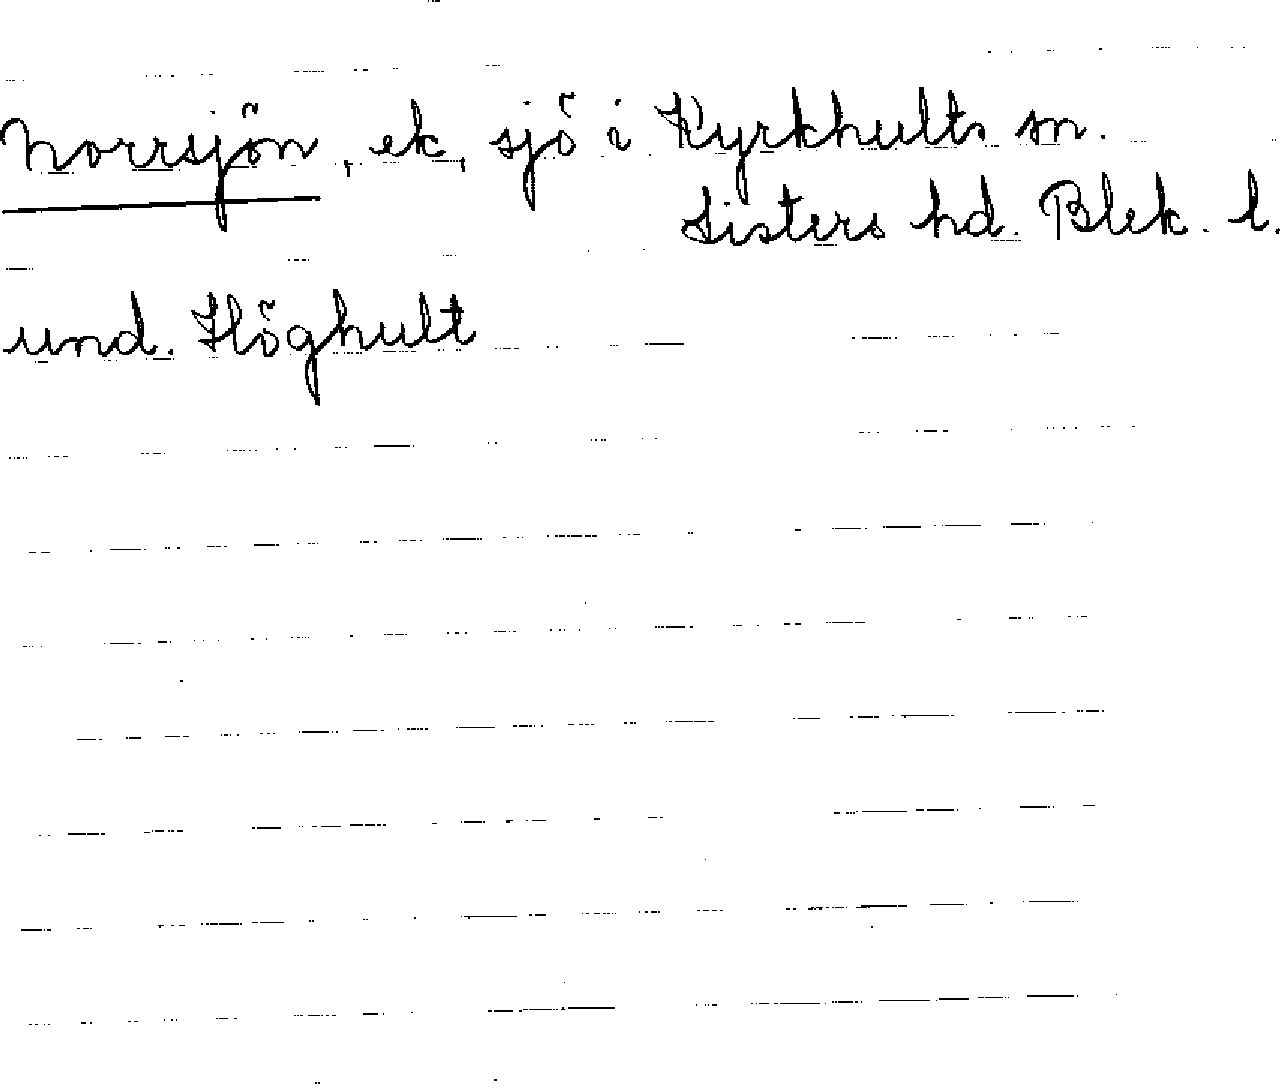 Norrsjön, ek, sjö i Kyrkhults sn.
Listers hd. Blek. l.
und. Höghult